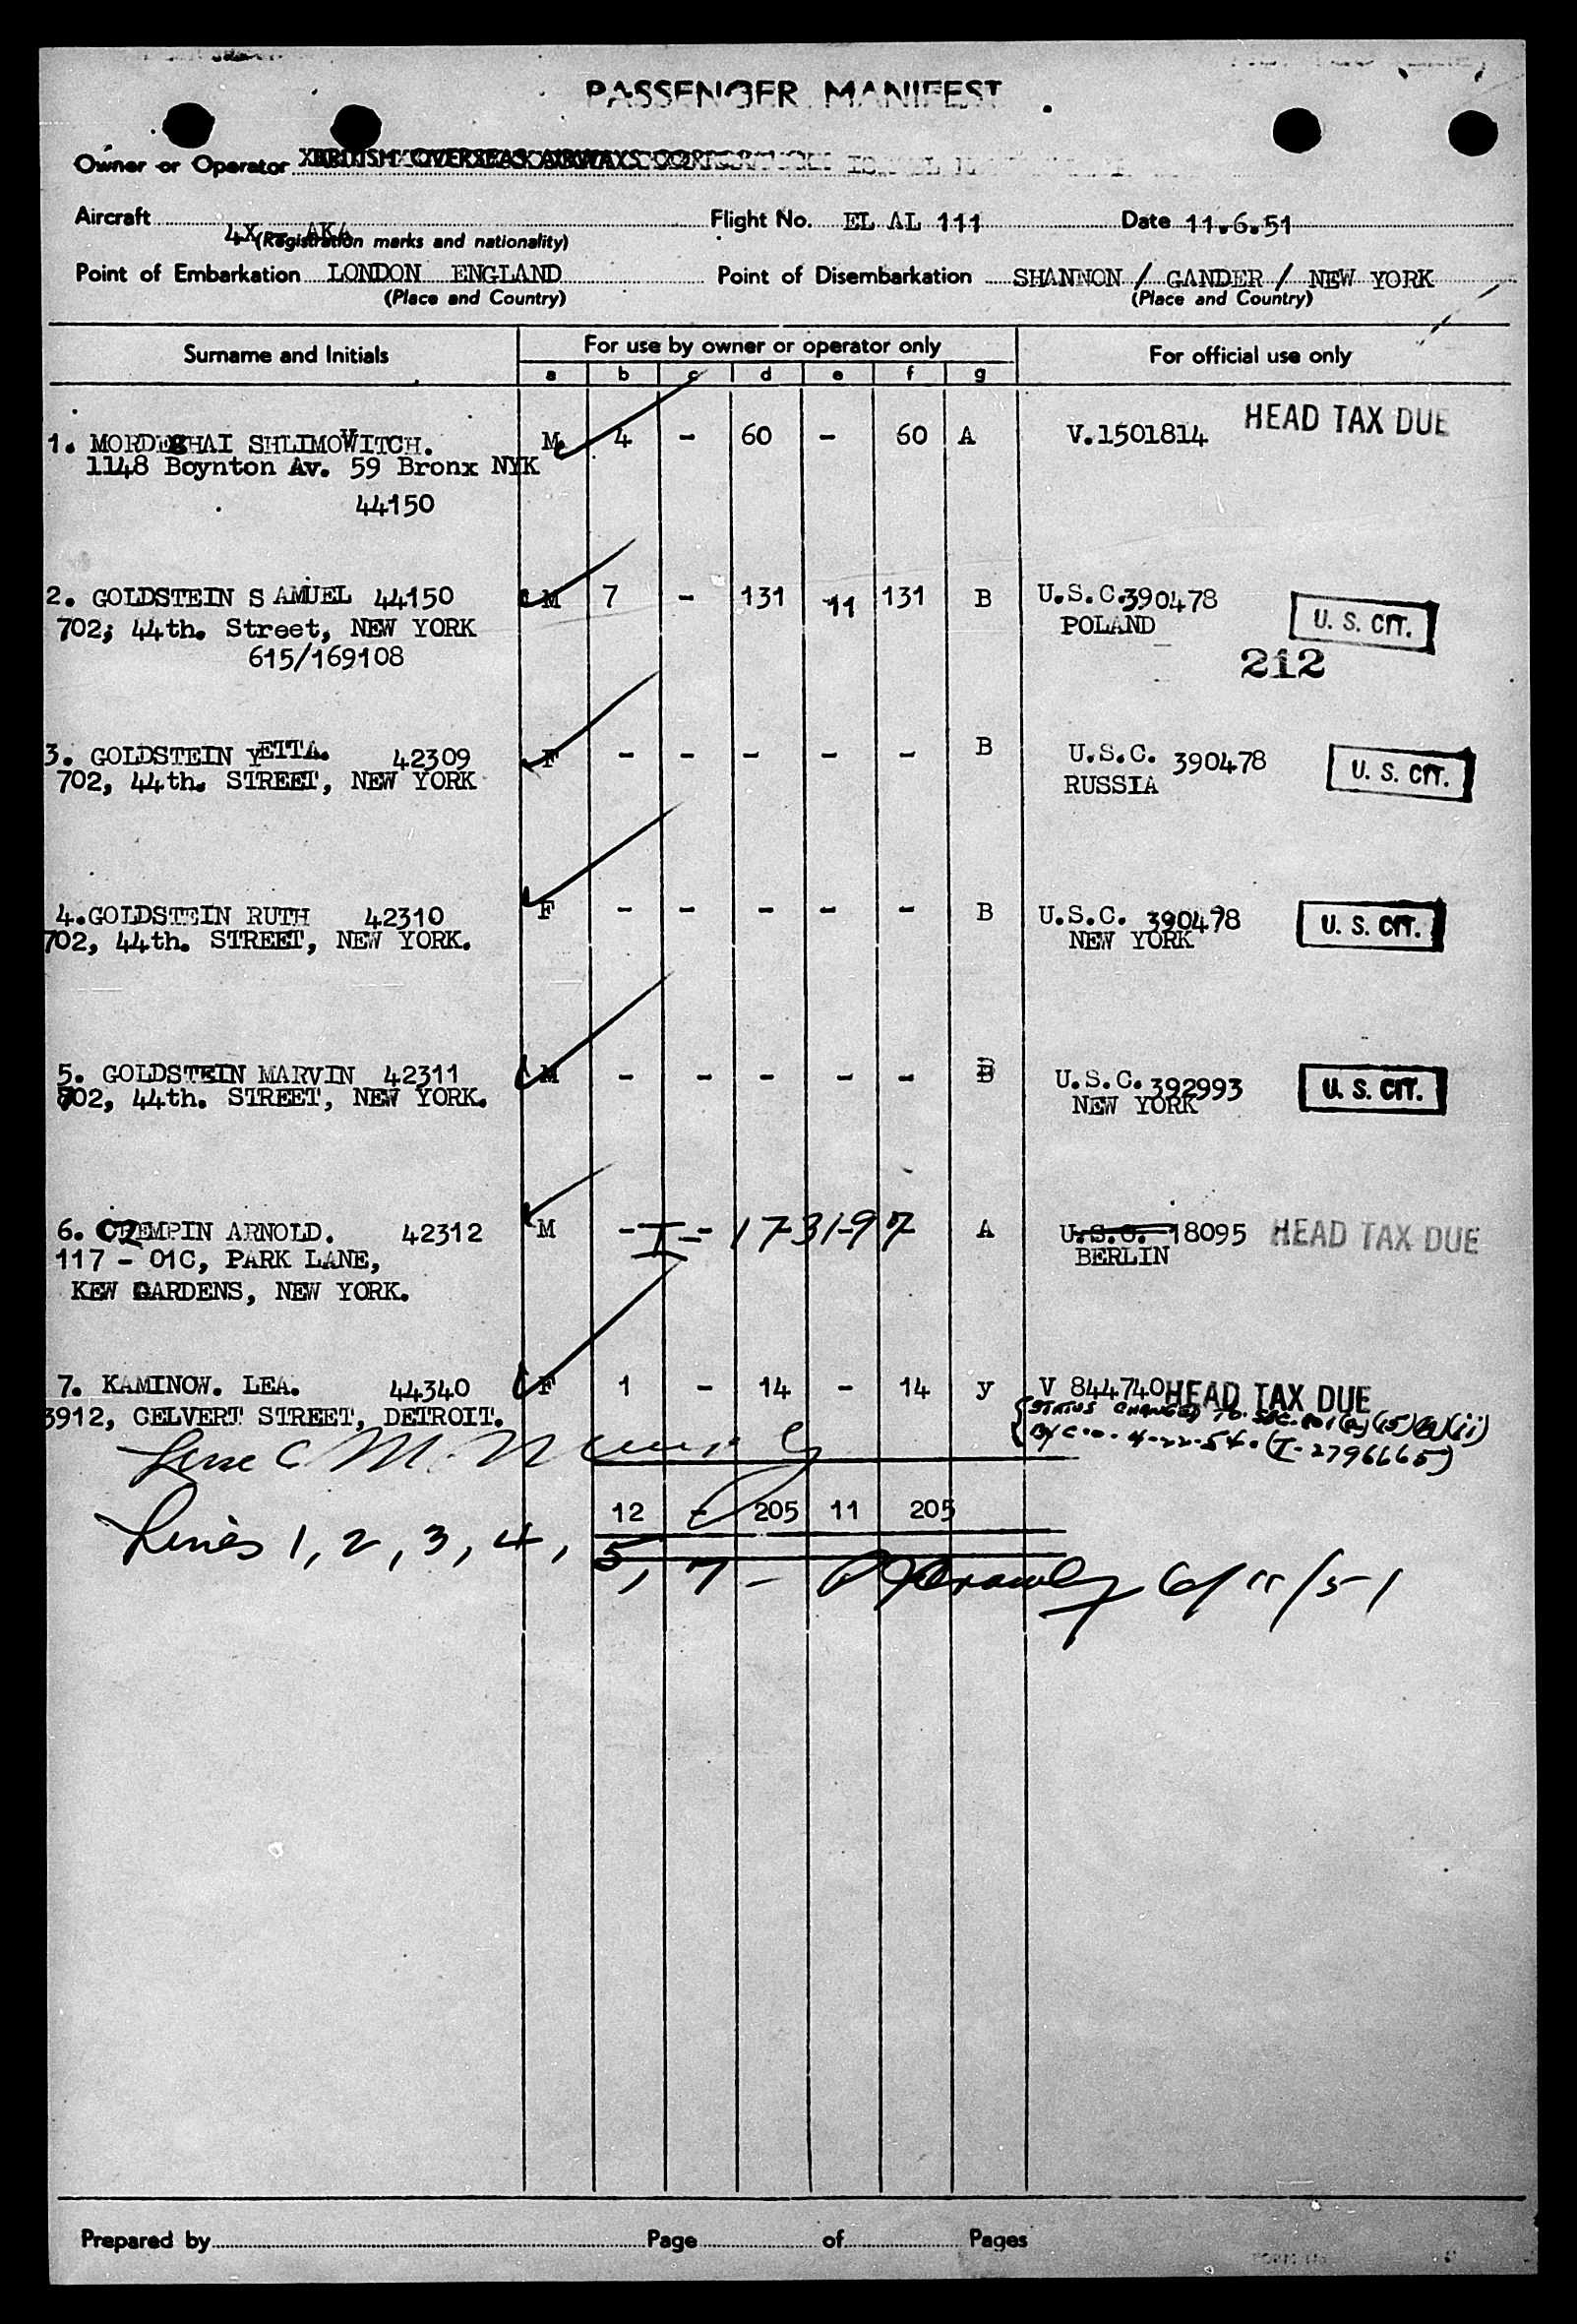 PASSENGER MANIFEST
Owner or Operator BRITISH OVERSEAS AIRWAYS
Aircraft 4X - AKA Flight No. EL AL 111 Date 11.6.51
(Registration marks and nationality)
Point of Embarkation LONDON ENGLAND Point of Disembarkation SHANNON / GANDER / NEW YORK
(Place and Country) (Place and Country)
Surname and Initials For use by owner or operator only For official use only
a b c d e f g
1. MORDECHAI SHLIMOVITCH. M. 4 - 60 - 60 A V.1501814 HEAD TAX DUE
1148 Boynton Av. 59 Bronx NYK
44150
2. GOLDSTEIN S AMUEL 44150 M 7 - 131 11 131 B U.S.C.390478
702; 44th. Street, NEW YORK POLAND U. S. CIT.
615/169108 212
3. GOLDSTEIN YETTA. 42309 F - - - - - B U.S.C. 390478
702, 44th. STREET, NEW YORK RUSSIA U. S. CIT.
4.GOLDSTEIN RUTH 42310 F - - - - - B U.S.C. 390478 U. S. CIT.
702, 44th. STREET, NEW YORK. NEW YORK
5. GOLDSTEIN MARVIN 42311 M - - - - - B U.S.C. 392993 U. S. CIT.
702, 44th. STREET, NEW YORK. NEW YORK
6. CZEMPIN ARNOLD. 42312 M - I - 1731-97 A U.S.C. 18095 HEAD TAX DUE
117 - 01C, PARK LANE, BERLIN
KEW GARDENS, NEW YORK.
7. KAMINOW. LEA. 44340 F 1 - 14 - 14 y V 844740 HEAD TAX DUE
3912, CELVERT STREET, DETROIT. STATUS CHANGED TO SEC. 101(a)(15)(A)(ii)
By C.O. 4-22-54. (I-2796665)
12 - 205 11 205
Lines 1, 2, 3, 4, 5, 7 - 6/11/51
Prepared by Page of Pages